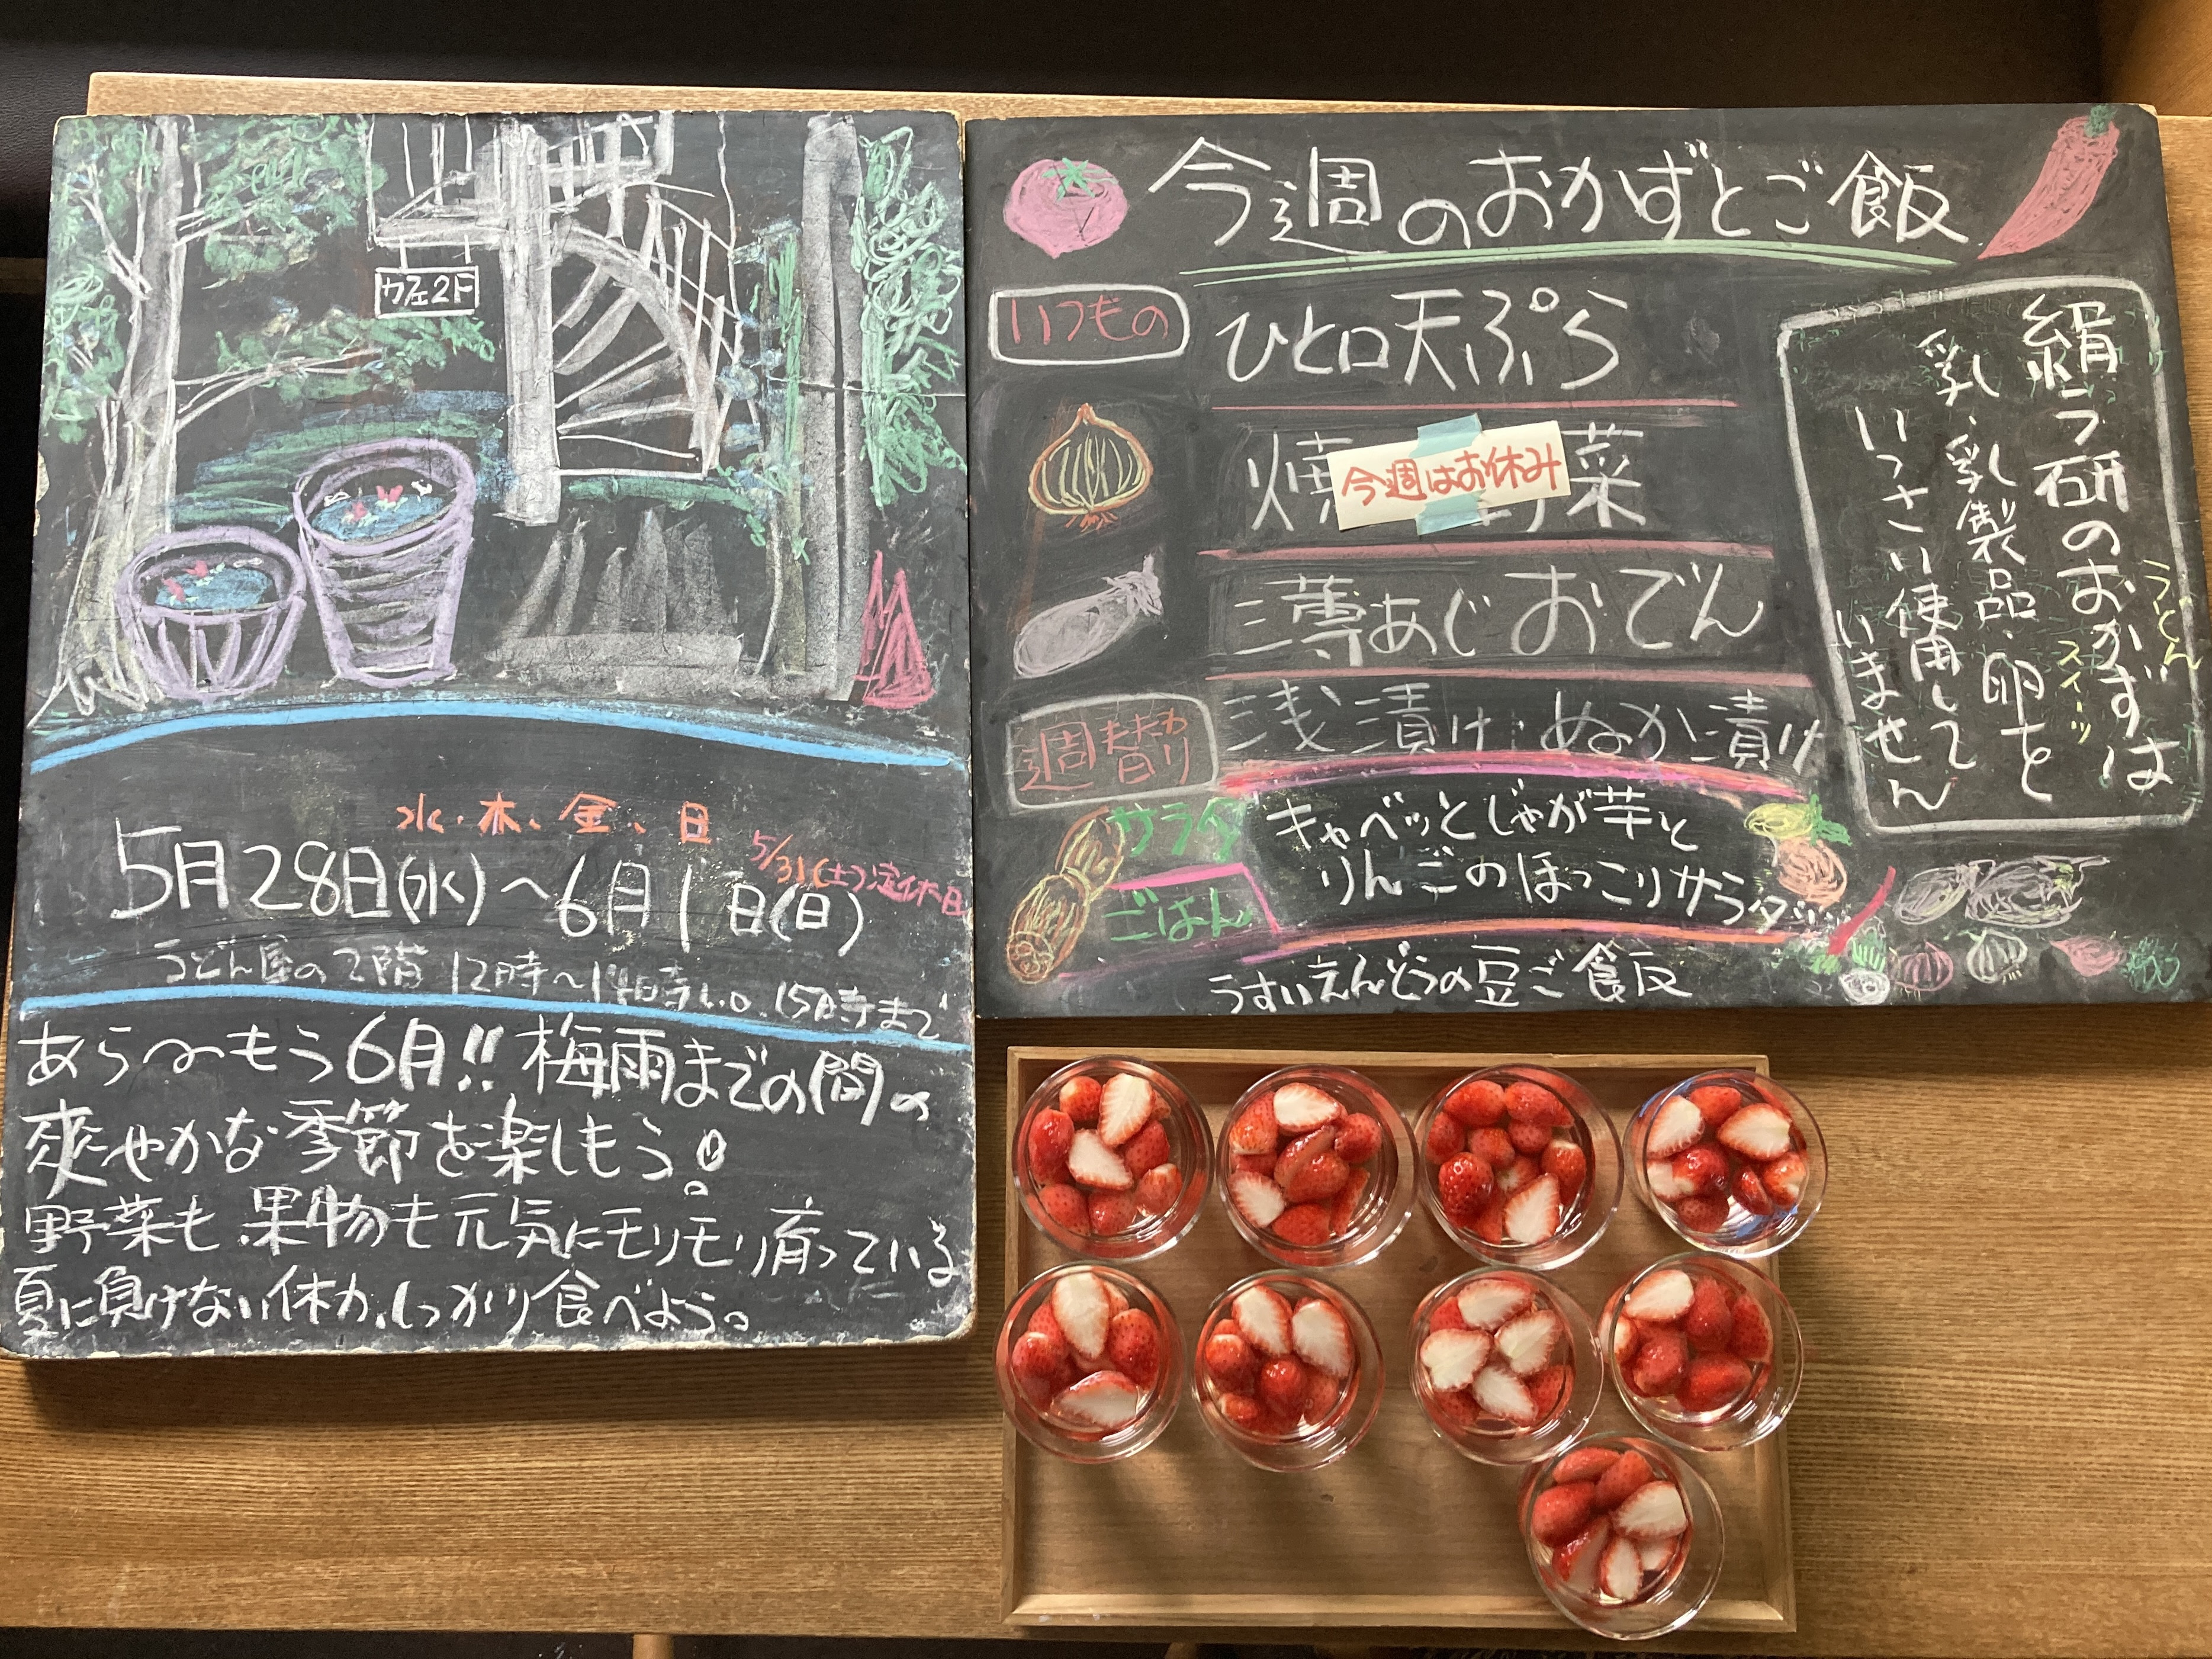 カフェ2F
水・木、金、日
5/31(土)定休日
5月28日(水)〜6月1日(日)
うどん屋の2階 12時〜14時L.O. 15時まで
あら〜もう6月!!梅雨までの間の
爽やかな季節を楽しもう!
野菜も、果物も元気にモリモリ育っている
夏に負けない体力、しっかり食べよう。
今週のおかずとご飯
いつもの
ひと口天ぷら
焼 菜
今週はお休み
薄あじおでん
週替わり
浅漬け ぬか漬け
サラダ
キャベツとじゃが芋と
りんごのほっこりサラダ
ごはん
うすいえんどうの豆ご飯
絹う研のおかずは
うどん
スイーツ
乳・乳製品・卵を
いっさい使用して
いません